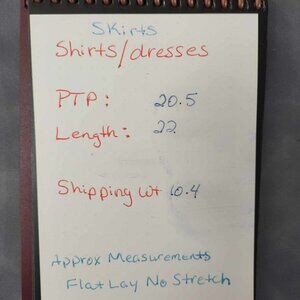 Skirts
Shirts/dresses
PTP: 20.5
Length: 22
Shipping wt 10.4
Approx Measurements
Flat Lay No Stretch